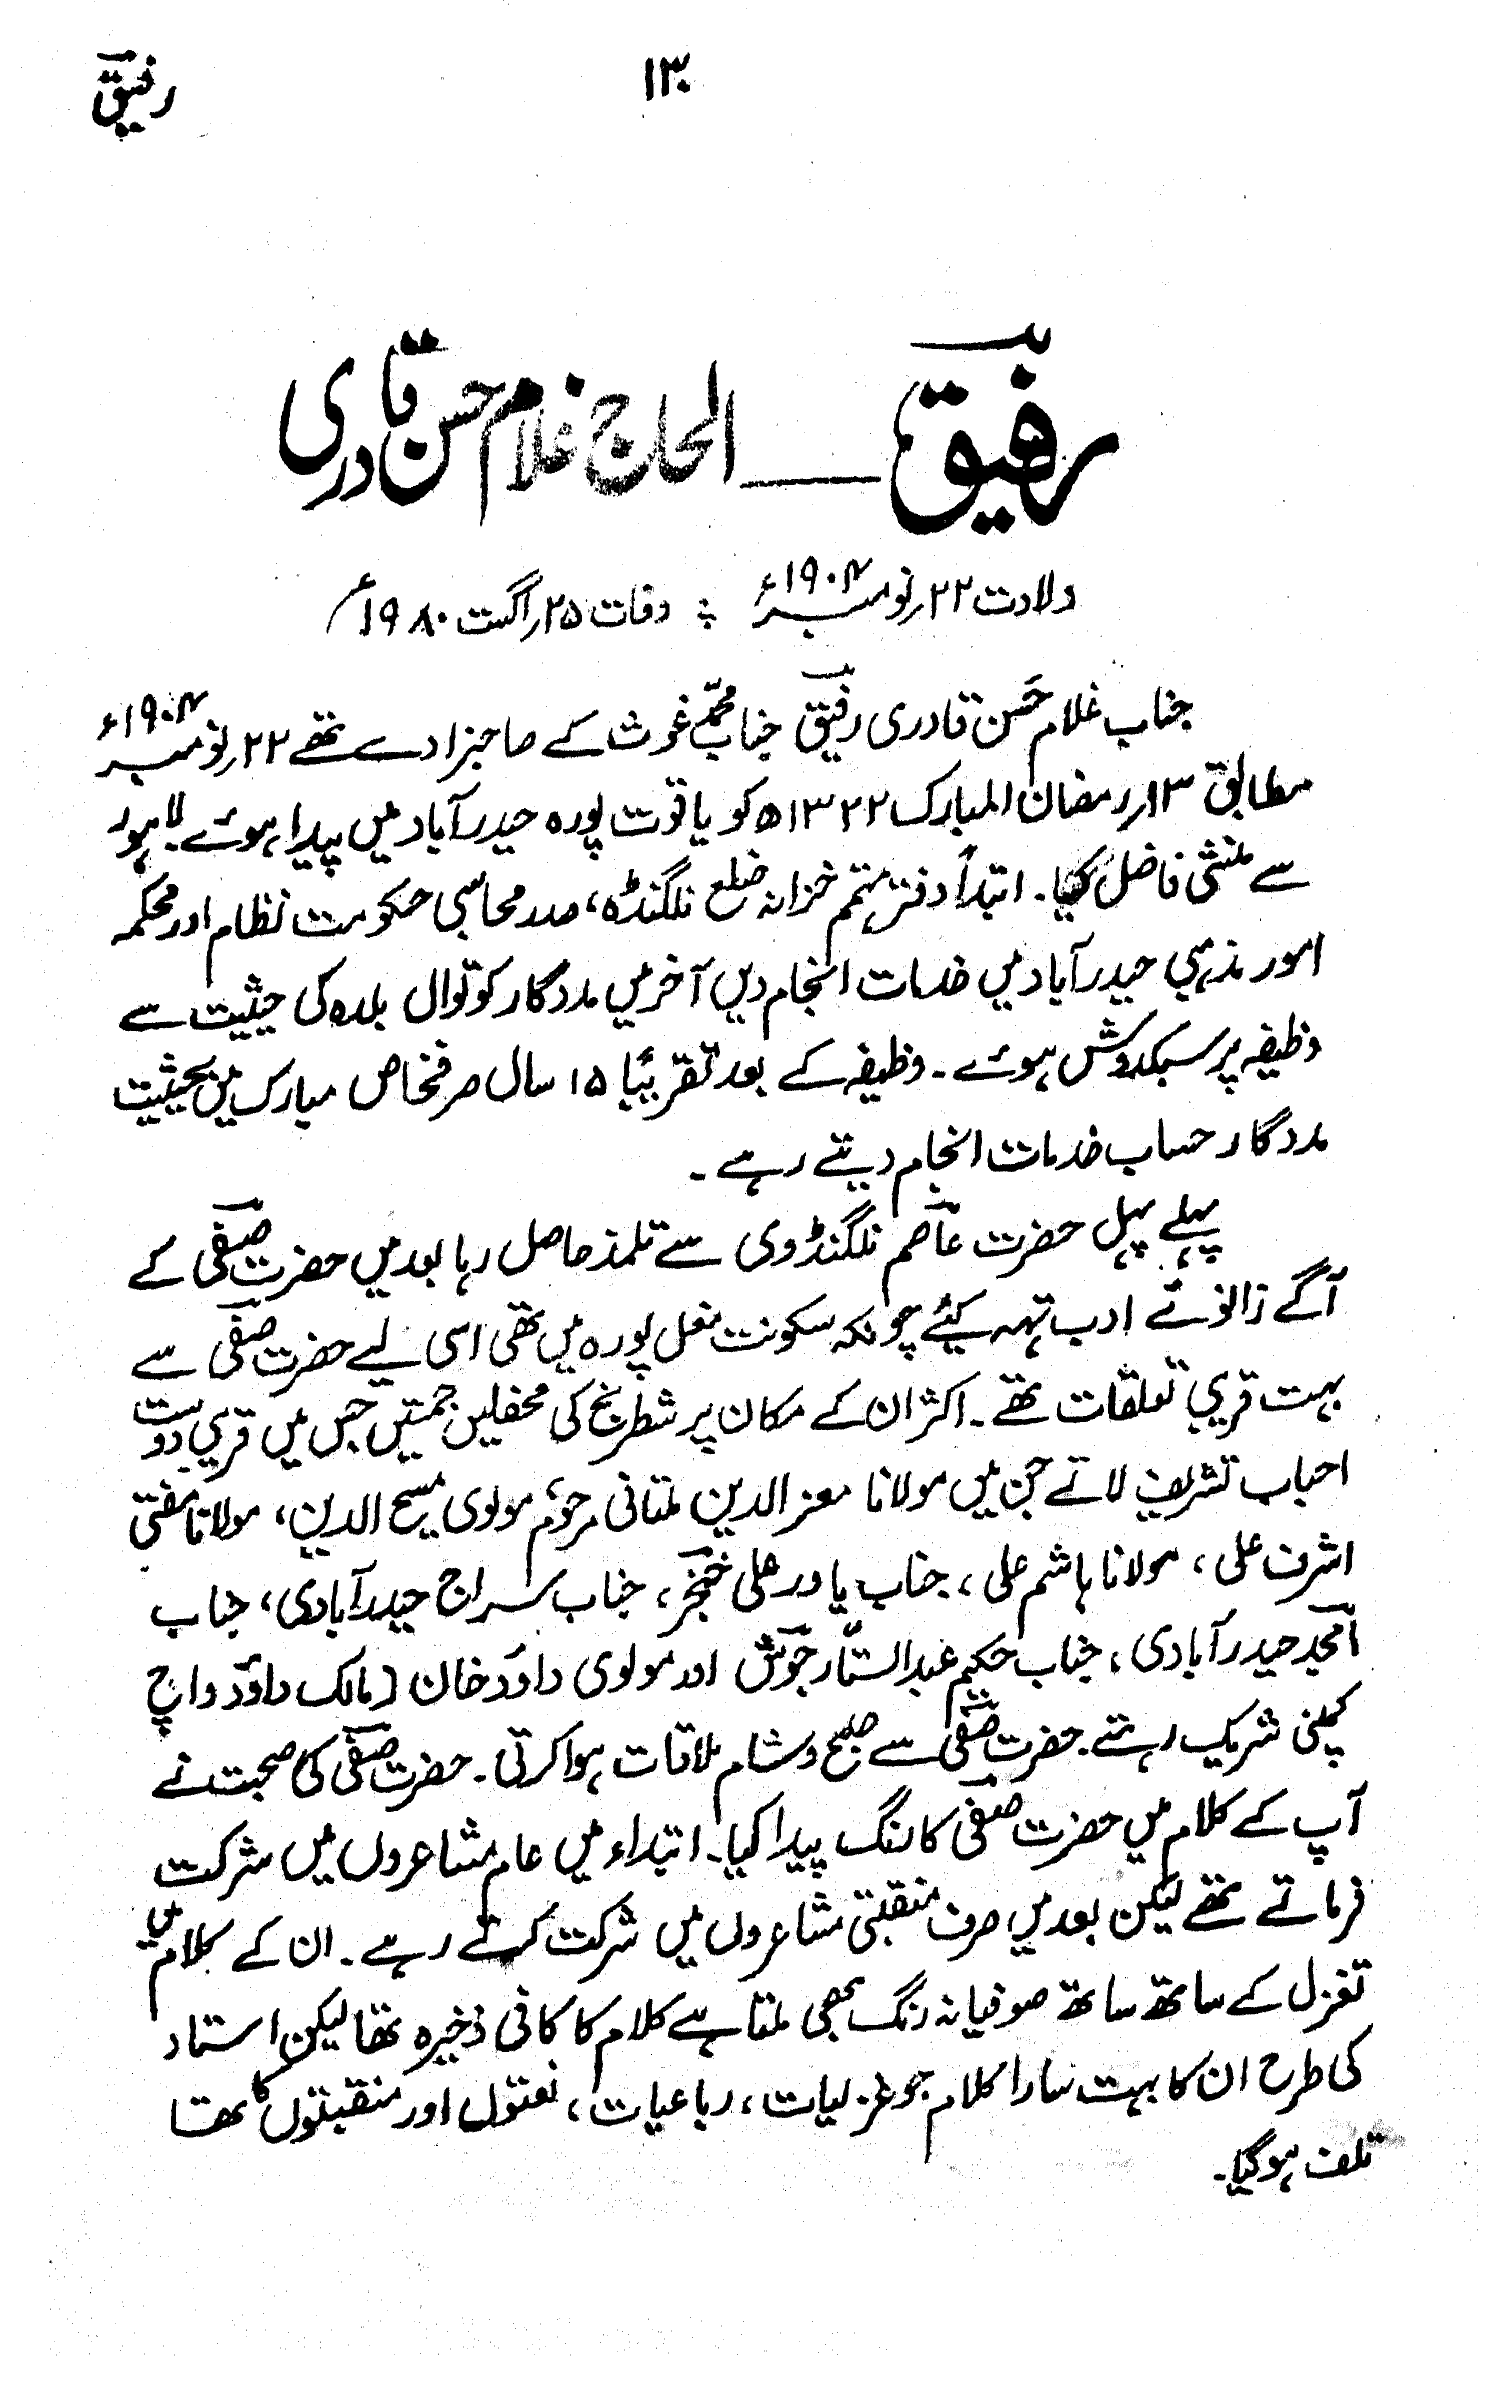 رفیقؔ
۱۳۰
رفیقؔ ــــ الحاج غلام حسن قادری
ولادت ۲۲؍نومبر ۱۹۰۴ء ؛ وفات ۲۵؍اگست ۱۹۸۰ء
جناب غلام حَسن قادری رفیقؔ جناب محمّد غوث کے صاحبزادے تھے ۲۲؍نومبر ۱۹۰۴ء
مطابق ۱۳؍رمضان المبارک ۱۳۲۲ھ کو یاقوت پورہ حیدرآباد میں پیدا ہوئے۔ لاہور
سے منشی فاضل کیا۔ ابتدأ دفتر مہتمم خزانہ ضلع نلگنڈہ، صدر محاسبی حکومت نظام اور محکمہ
امور مذہبی حیدرآباد میں خدمات انجام دیں آخر میں مددگار کوتوال بلدہ کی حیثیت سے
وظیفہ پر سبکدوش ہوئے۔ وظیفہ کے بعد تقریبًا ۱۵ سال صرفخاص مبارک میں بحیثیت
مددگار حساب خدمات انجام دیتے رہے۔
پہلے پہل حضرت عاصمؔ نلگنڈوی سے تلمذ حاصل رہا بعد میں حضرت صفیؔ کے
آگے زانوئے ادب تہہ کیئے چونکہ سکونت مغل پورہ میں تھی اسی لیے حضرت صفیؔ سے
بہت قریبی تعلقات تھے۔ اکثر ان کے مکان پر شطرنج کی محفلیں جمتیں جس میں قریبی دوست
احباب تشریف لاتے جن میں مولانا معز الدین ملتانی مرحوم مولوی مسیح الدین، مولانا مفتی
اشرف علی، مولانا ہاشم علی، جناب یاور علی خنجرؔ، جناب سراج حیدرآبادی، جناب
امجدؔ حیدرآبادی، جناب حکیم عبدالستّار جوشؔ اور مولوی داؤد خان (مالک داؤد واچ
کمپنی شریک رہتے۔ حضرت صفیؔ سے صبح و شام ملاقات ہوا کرتی۔ حضرت صفیؔ کی صحبت نے
آپ کے کلام میں حضرت صفیؔ کا رنگ پیدا کیا۔ ابتداء میں عام مشاعروں میں شرکت
فرماتے تھے لیکن بعد میں صرف منقبتی مشاعروں میں شرکت کرتے رہے۔ ان کے کلام میں
تغزل کے ساتھ ساتھ صوفیانہ رنگ بھی ملتا ہے کلام کا کافی ذخیرہ تھا لیکن استاد
کی طرح ان کا بہت سارا کلام جو غزلیات، رباعیات، نعتوں اور منقبتوں کا تھا
تلف ہوگیا۔